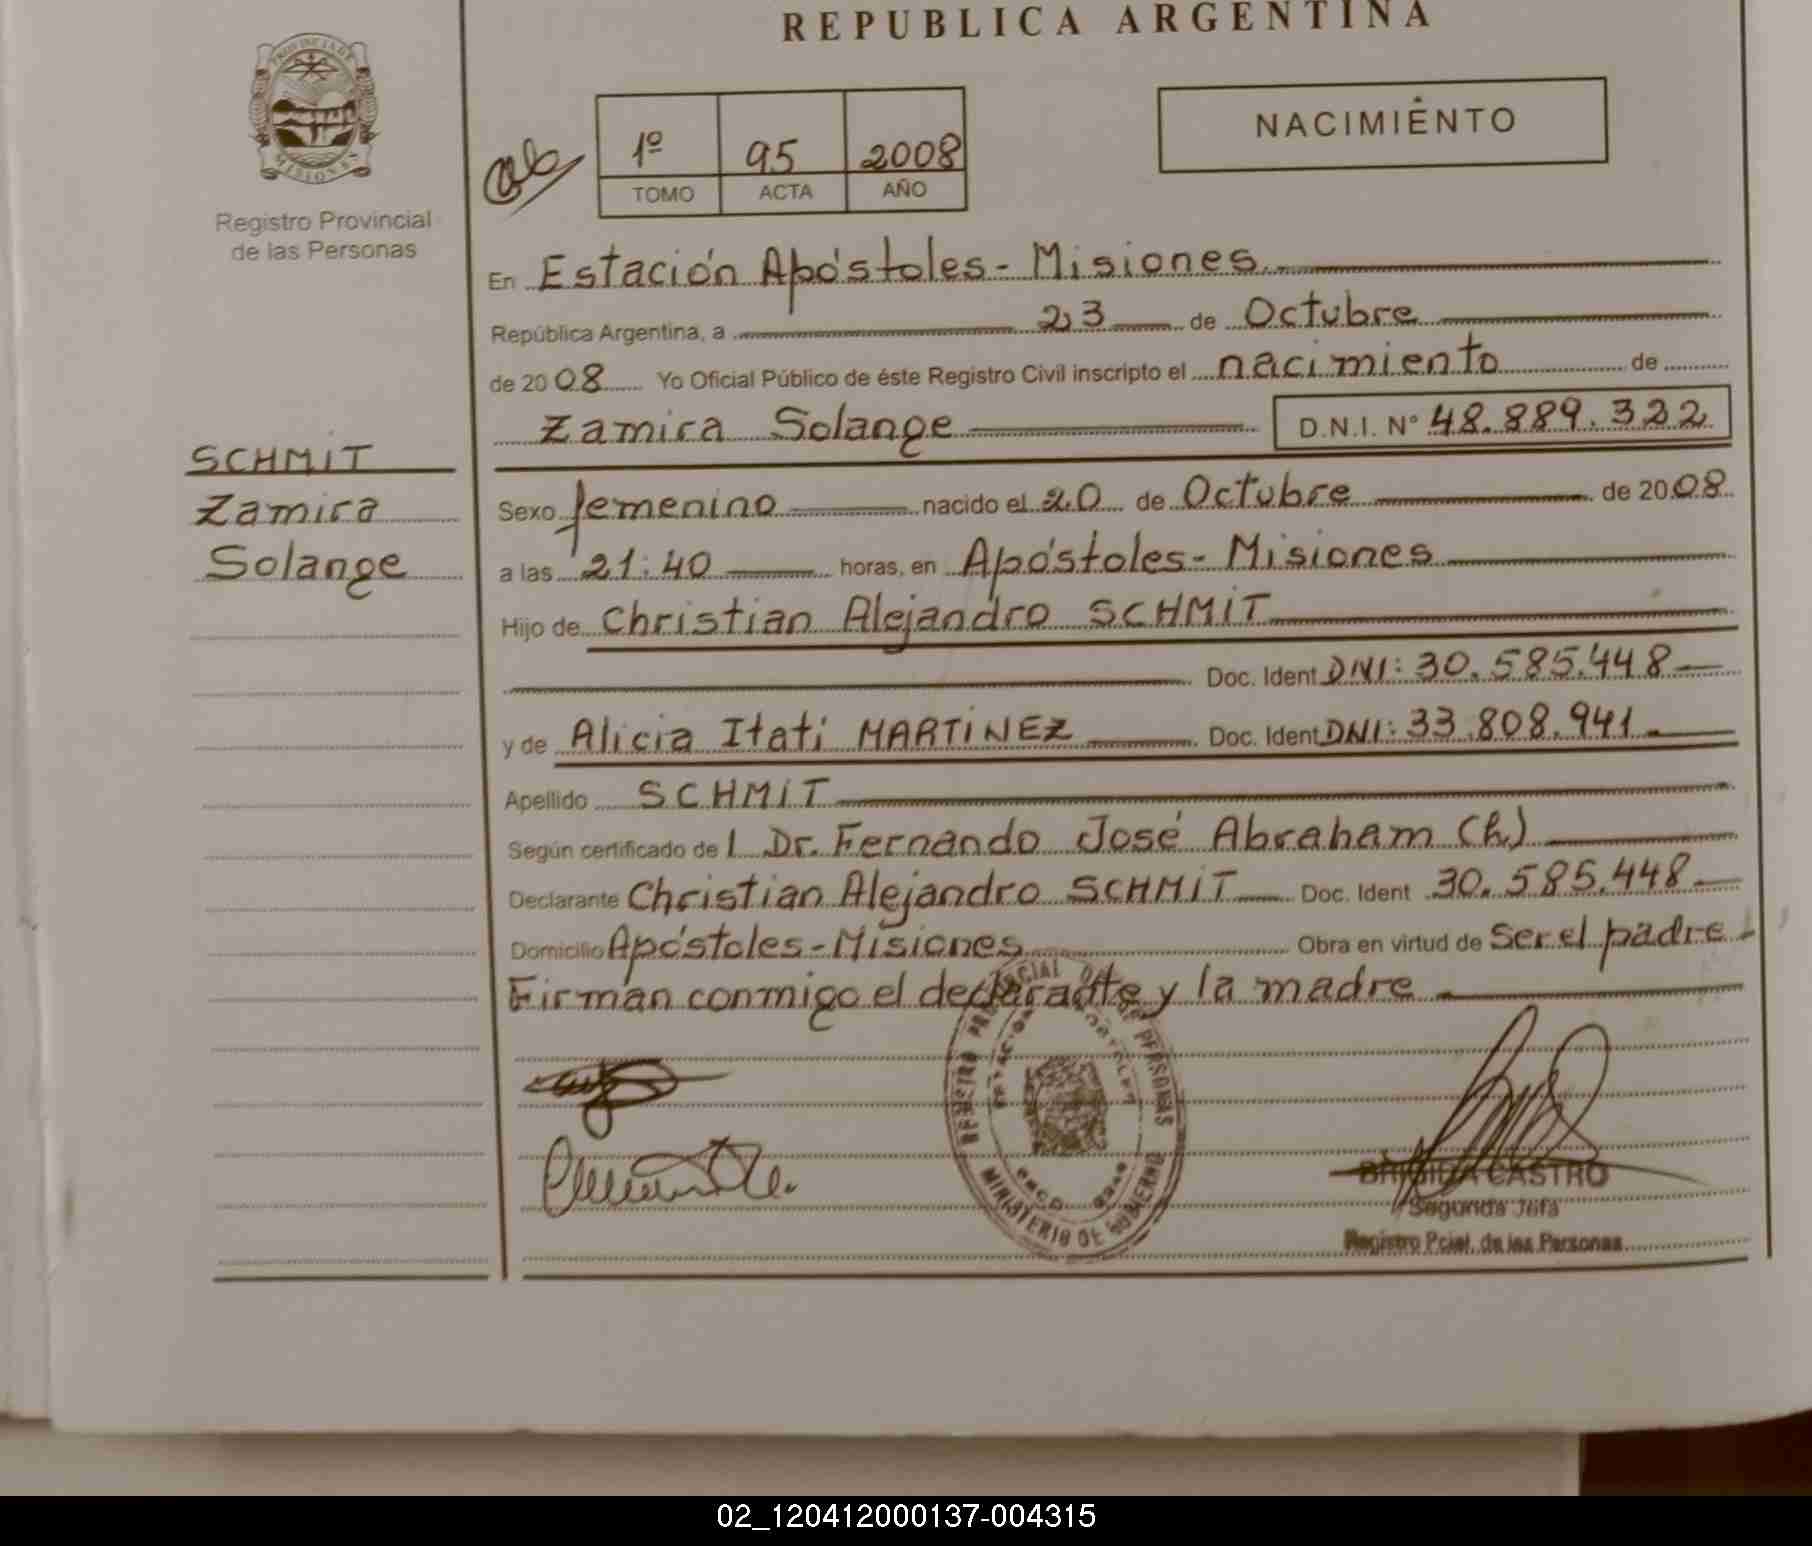 REPUBLICA ARGENTINA
PROVINCIA DE
MISIONES
Registro Provincial
de las Personas
NACIMIENTO
1º 95 2008
TOMO ACTA AÑO
En Estación Apóstoles - Misiones
República Argentina, a 23 de Octubre
de 2008 Yo Oficial Público de éste Registro Civil inscripto el nacimiento de
Zamira Solange D.N.I. Nº 48.889.322
SCHMIT
Zamira
Solange
Sexo femenino nacido el 20 de Octubre de 2008
a las 21:40 horas, en Apóstoles - Misiones
Hijo de Christian Alejandro SCHMIT
Doc. Ident DNI: 30.585.448
y de Alicia Itati MARTINEZ Doc. Ident DNI: 33.808.941
Apellido SCHMIT
Según certificado del Dr. Fernando José Abraham (h)
Declarante Christian Alejandro SCHMIT Doc. Ident 30.585.448
Domicilio Apóstoles - Misiones Obra en virtud de ser el padre
Firman conmigo el declarante y la madre
REGISTRO PROVINCIAL DE PERSONAS
MINISTERIO DE GOBIERNO
BRIGIDA CASTRO
Segunda Jefa
Registro Pcial. de las Personas
02_120412000137-004315